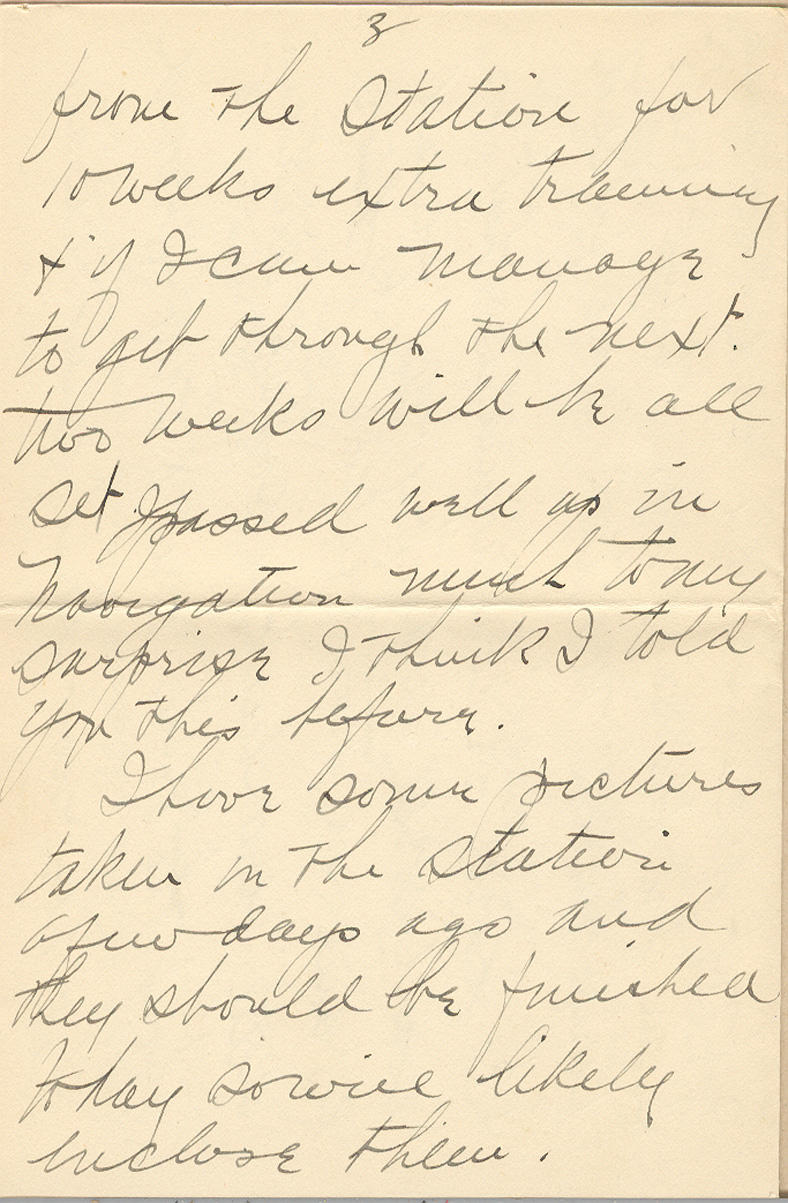 3
from the Station for
10 weeks extra training
& if I can manage
to get through the next
two weeks will be all
set. I passed well up in
Navigation much to my
surprise I think I told
you this before.
I have some pictures
taken on the station
a few days ago and
they should be finished
today so will likely
enclose them.